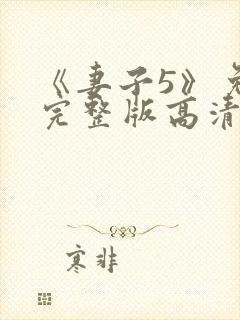 《妻子5》免
完整版高清
寒非